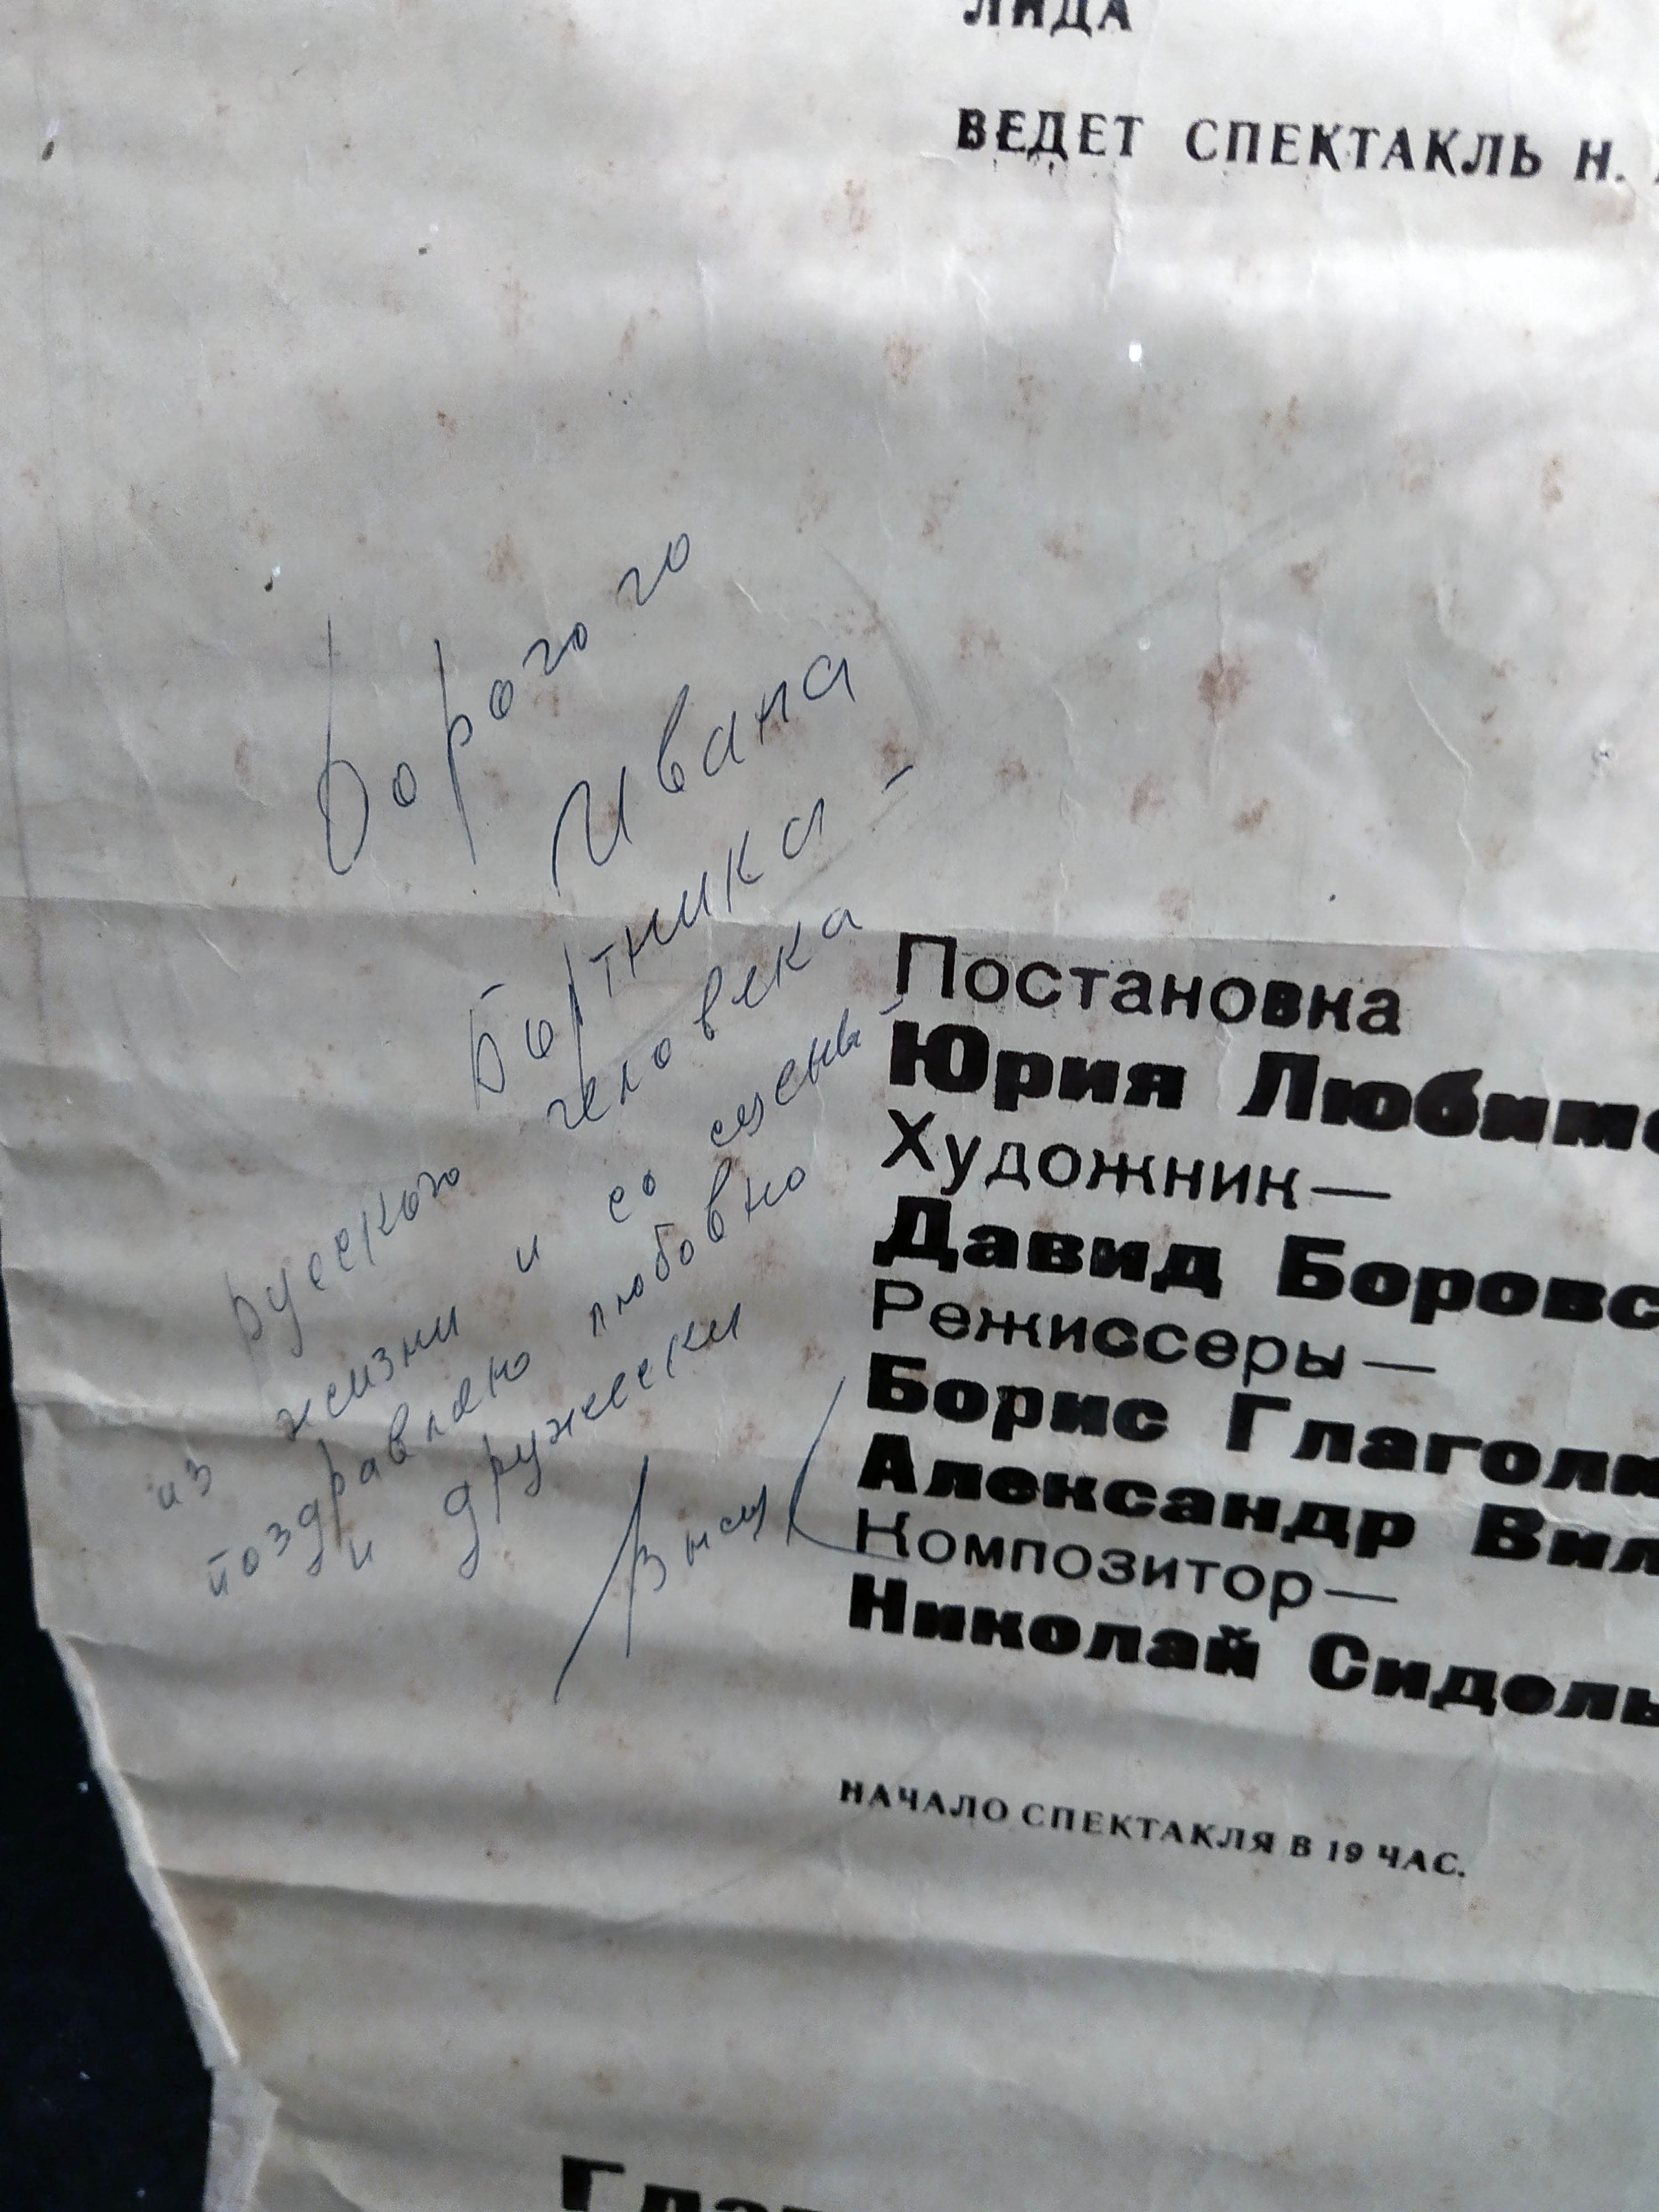 ЛИДА
ВЕДЕТ СПЕКТАКЛЬ Н.
Дорогого
Ивана
Бортника –
русского человека
из жизни и со сцены –
поздравляю любовно
и дружески
Постановка
Юрия Любимо
Художник—
Давид Боровс
Режиссеры—
Борис Глаголи
Александр Вил
Композитор—
Николай Сидель
НАЧАЛО СПЕКТАКЛЯ В 19 ЧАС.
Глав